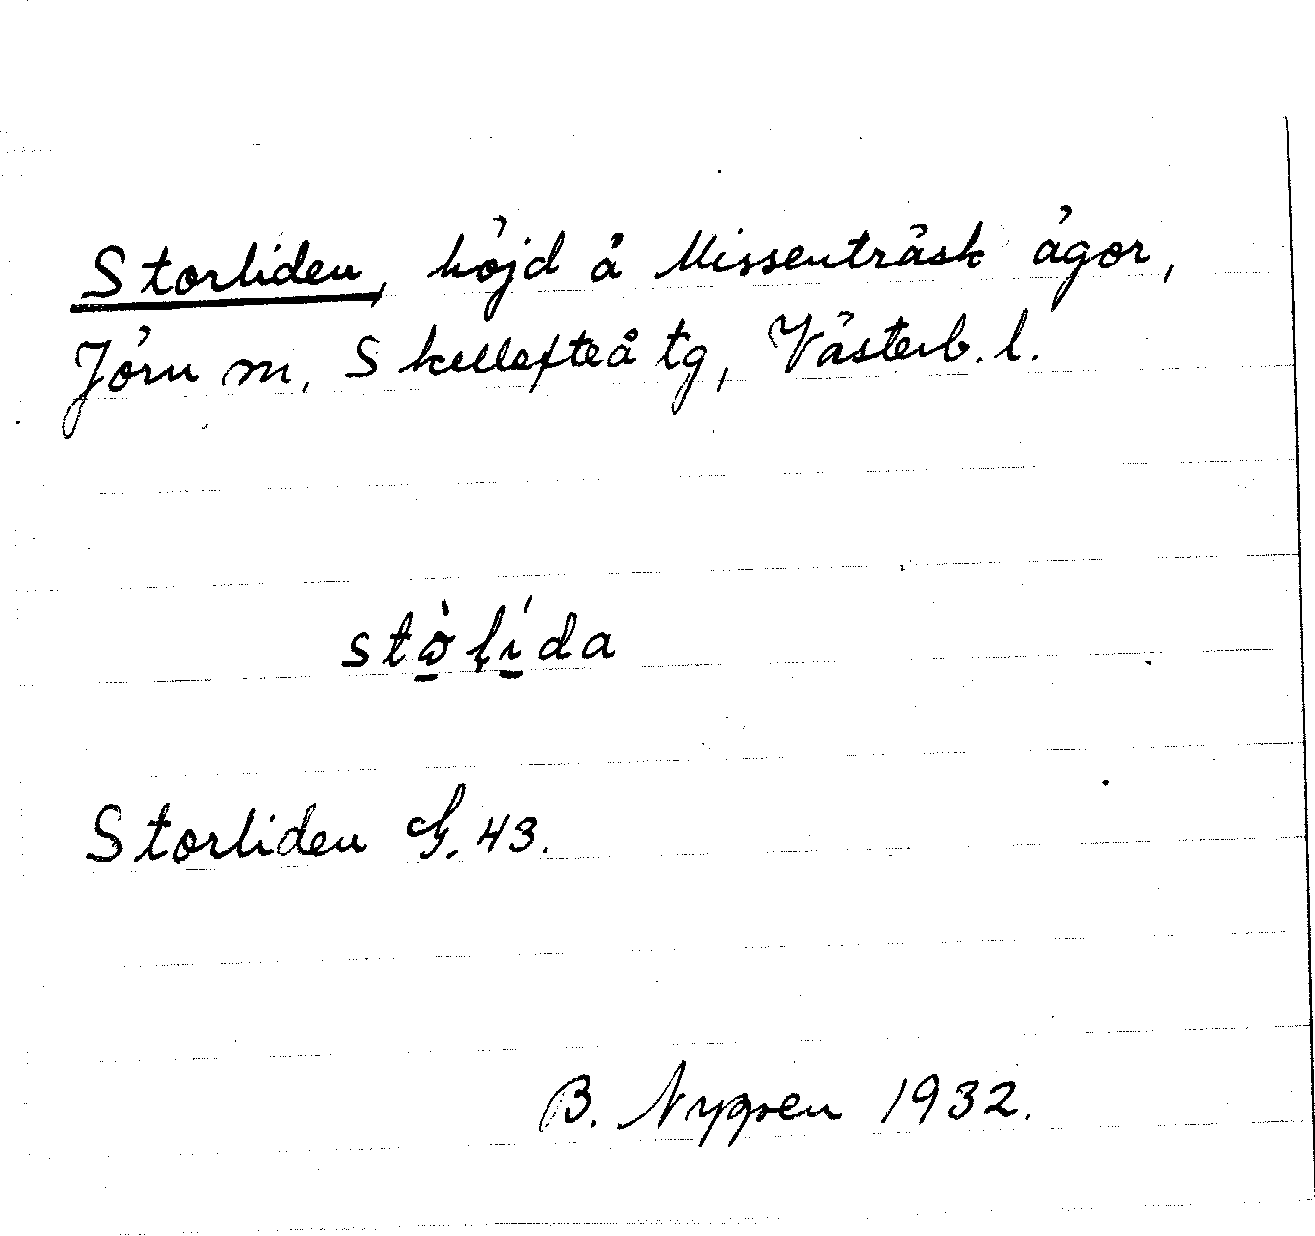 Storliden, höjd å Missenträsk ägor,
Jörn sn, Skellefteå tg, Västerb. l.
Storliden G. 43.
B. Nygren 1932.